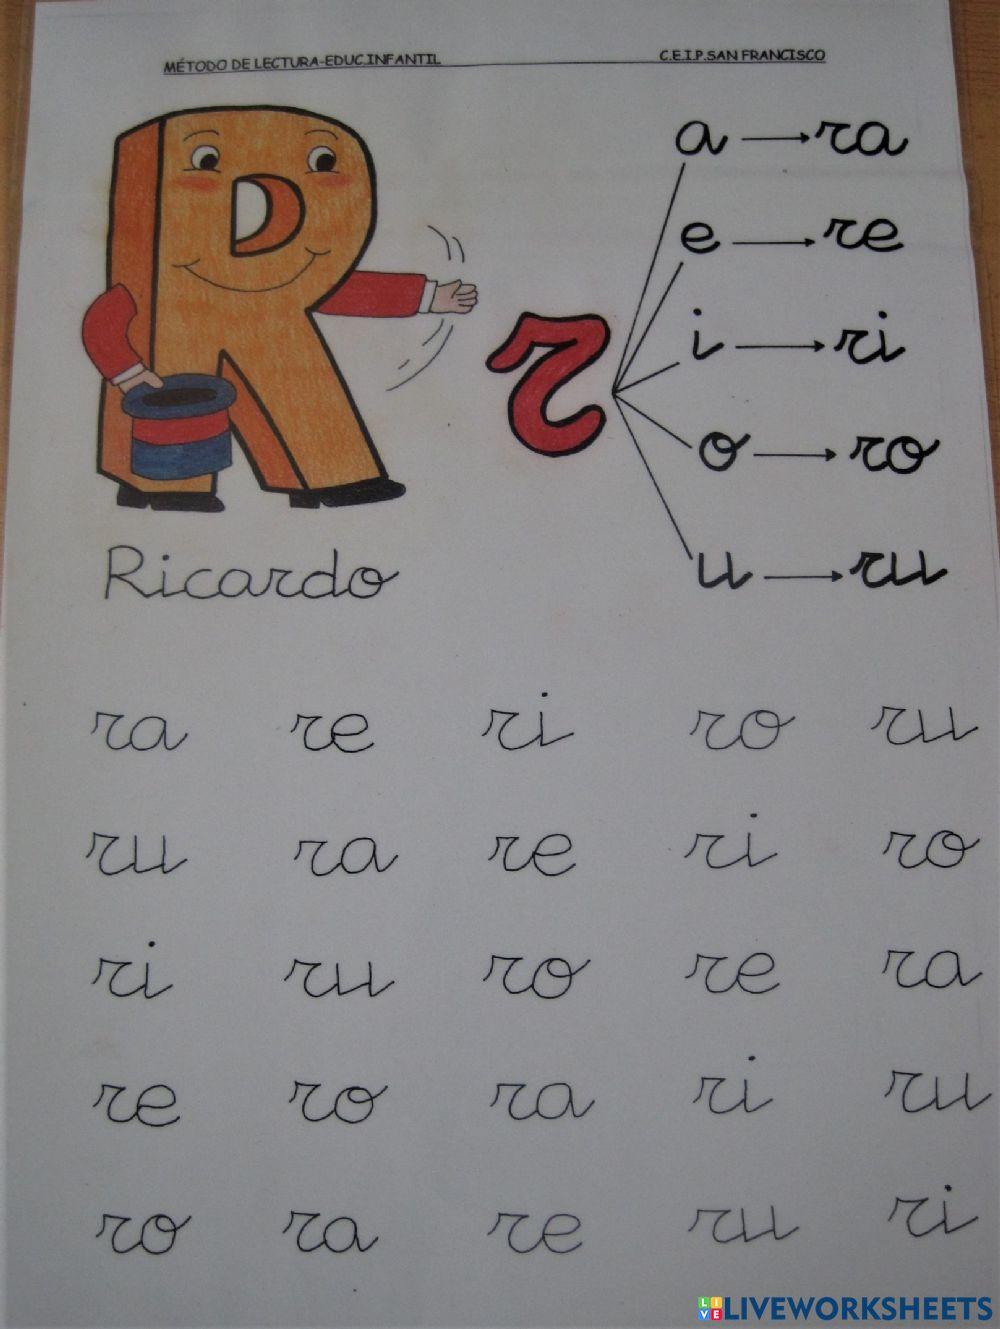 MÉTODO DE LECTURA-EDUC.INFANTIL C.E.I.P.SAN FRANCISCO
a → ra
e → re
i → ri
r
o → ro
u → ru
Ricardo
ra re ri ro ru
ru ra re ri ro
ri ru ro re ra
re ro ra ri ru
ro ra re ru ri
LIVEWORKSHEETS